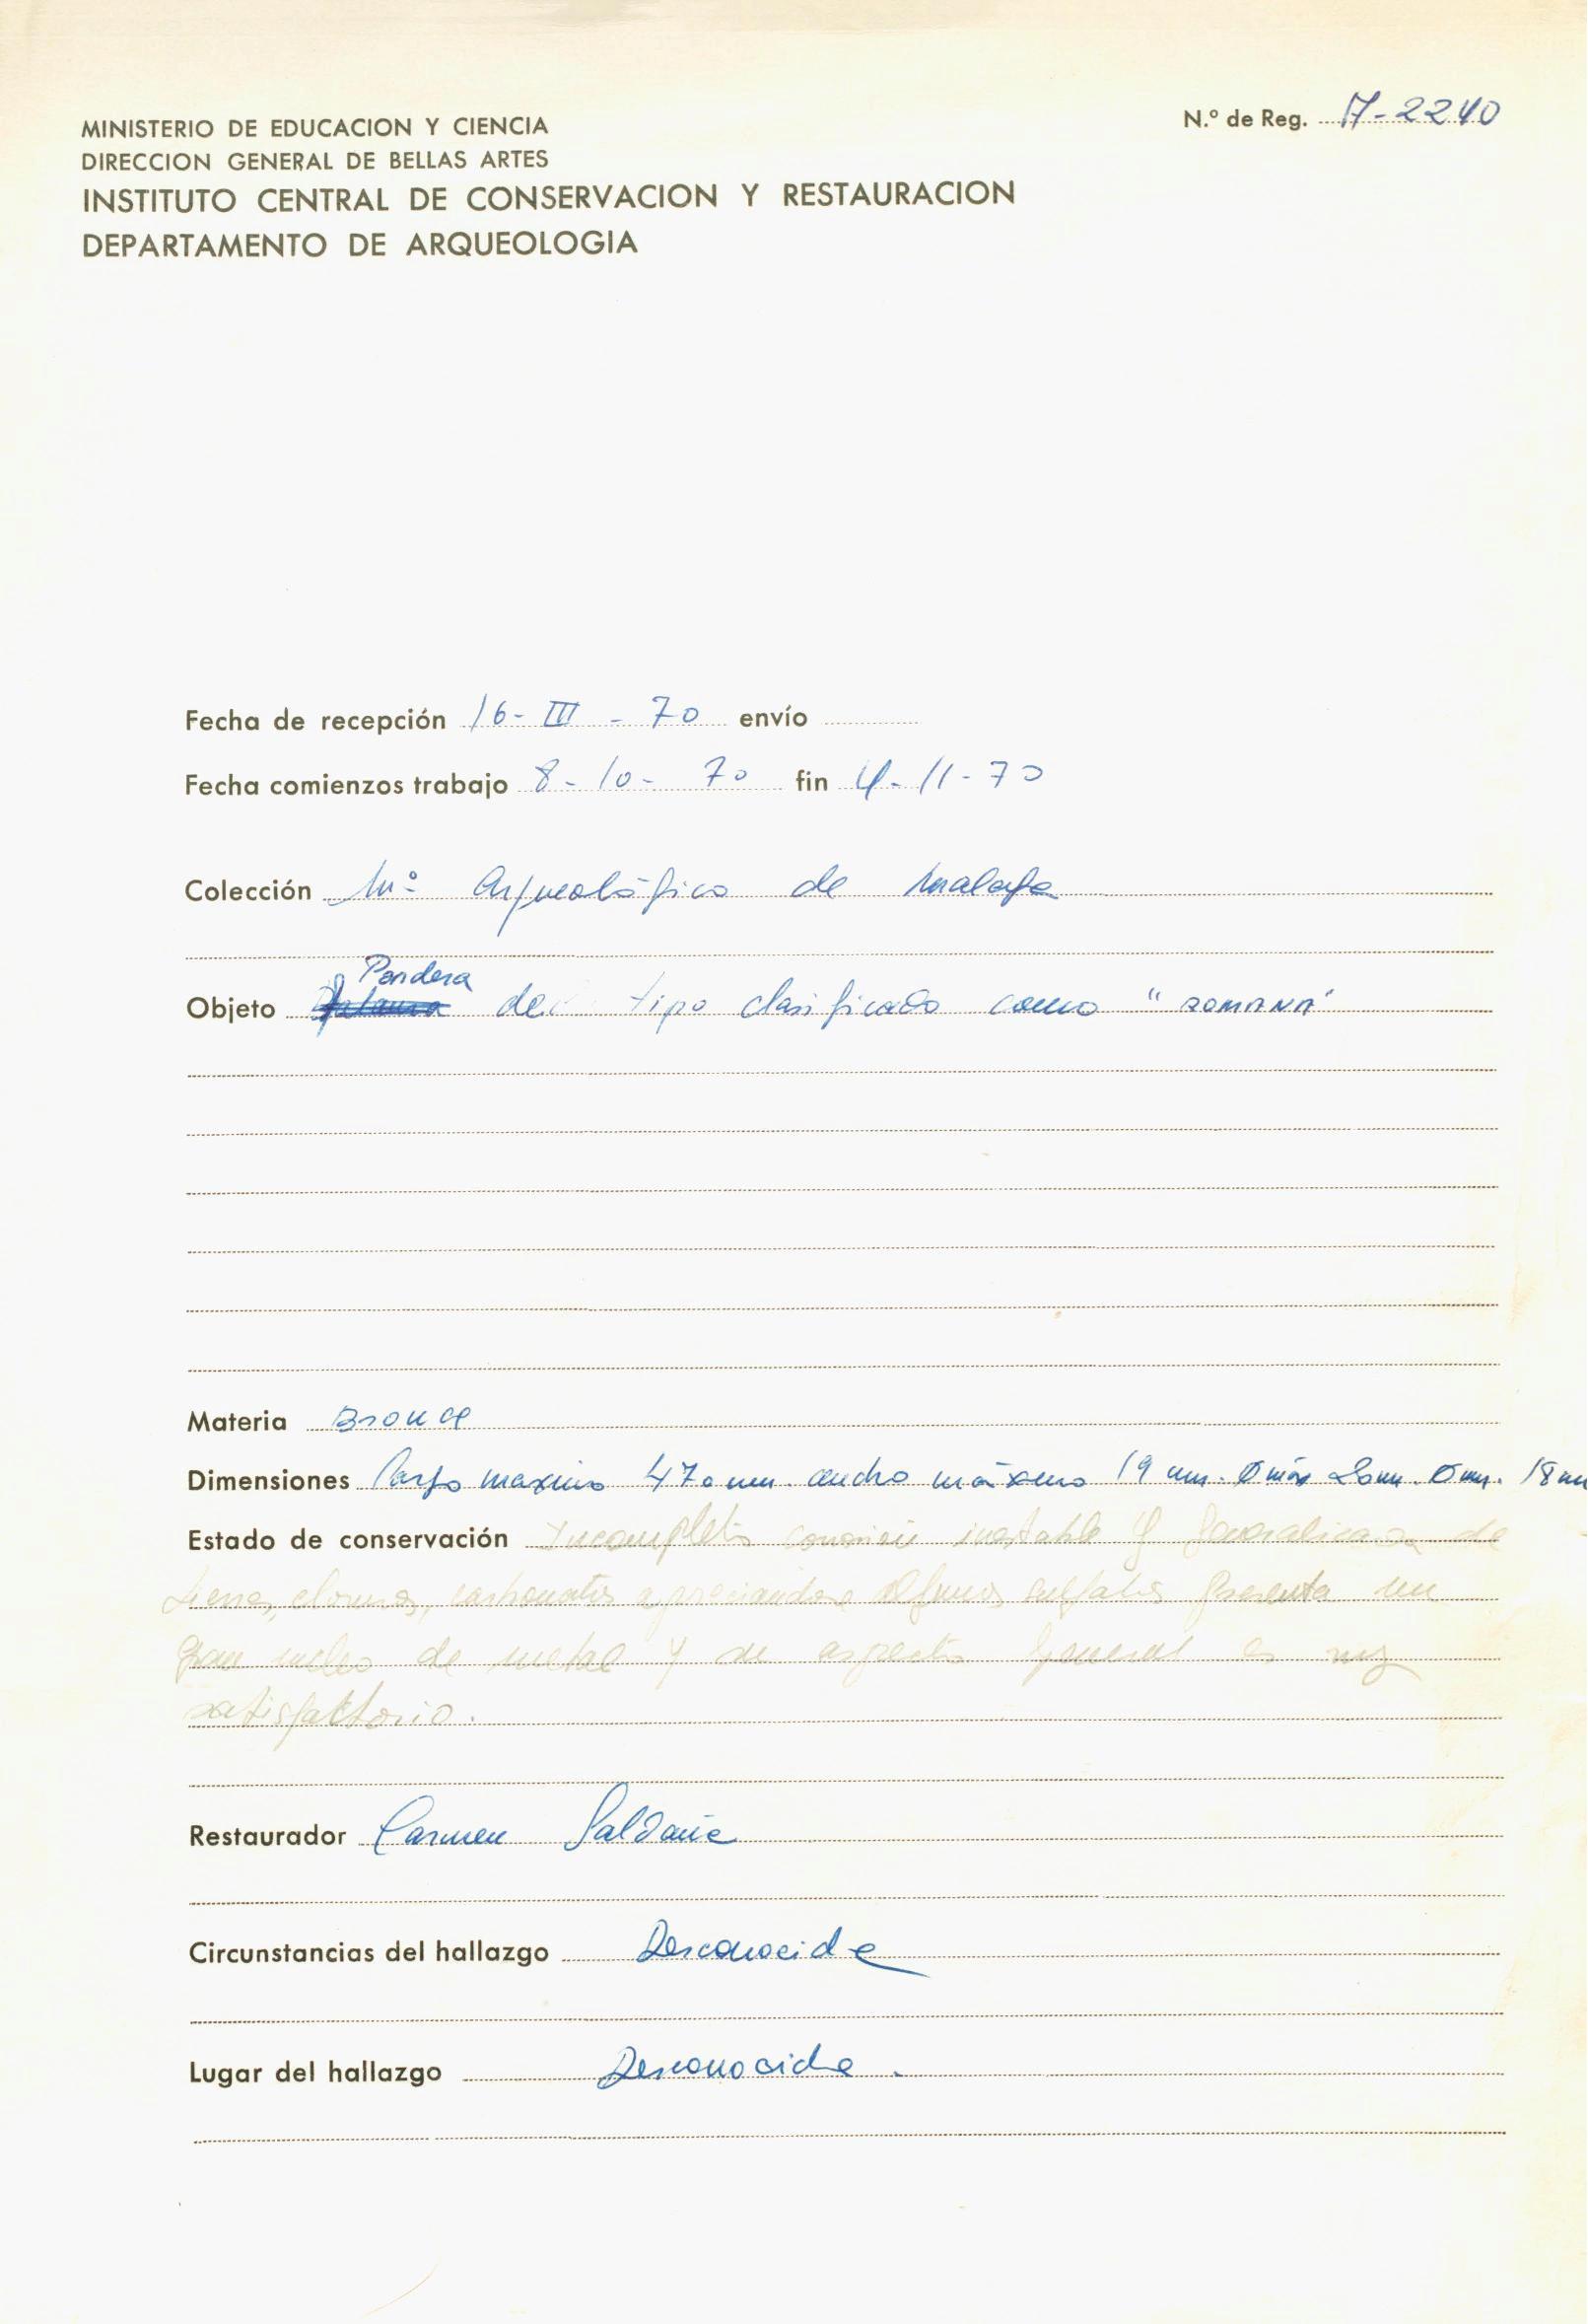 MINISTERIO DE EDUCACION Y CIENCIA
DIRECCION GENERAL DE BELLAS ARTES
INSTITUTO CENTRAL DE CONSERVACION Y RESTAURACION
DEPARTAMENTO DE ARQUEOLOGIA
N.º de Reg. A-2240
Fecha de recepción 16-III-70 envío
Fecha comienzos trabajo 8-10-70 fin 4-11-70
Colección Mº Arqueológico de Malaga
Pondera
Objeto del tipo clasificado como "ROMANA"
Materia Bronce
Dimensiones largo maximo 470 mm. ancho máximo 19 mm. Ø máx 20 mm. Ø mn. 18 mm
Estado de conservación Incompleto corrosión inestable y generalizada de
tierras, cloruros, carbonatos apreciandose algunos sulfatos presenta un
gran nucleo de metal y su aspecto general es muy
satisfactorio.
Restaurador Carmen Saldaña
Circunstancias del hallazgo Desconocida
Lugar del hallazgo Desconocida.